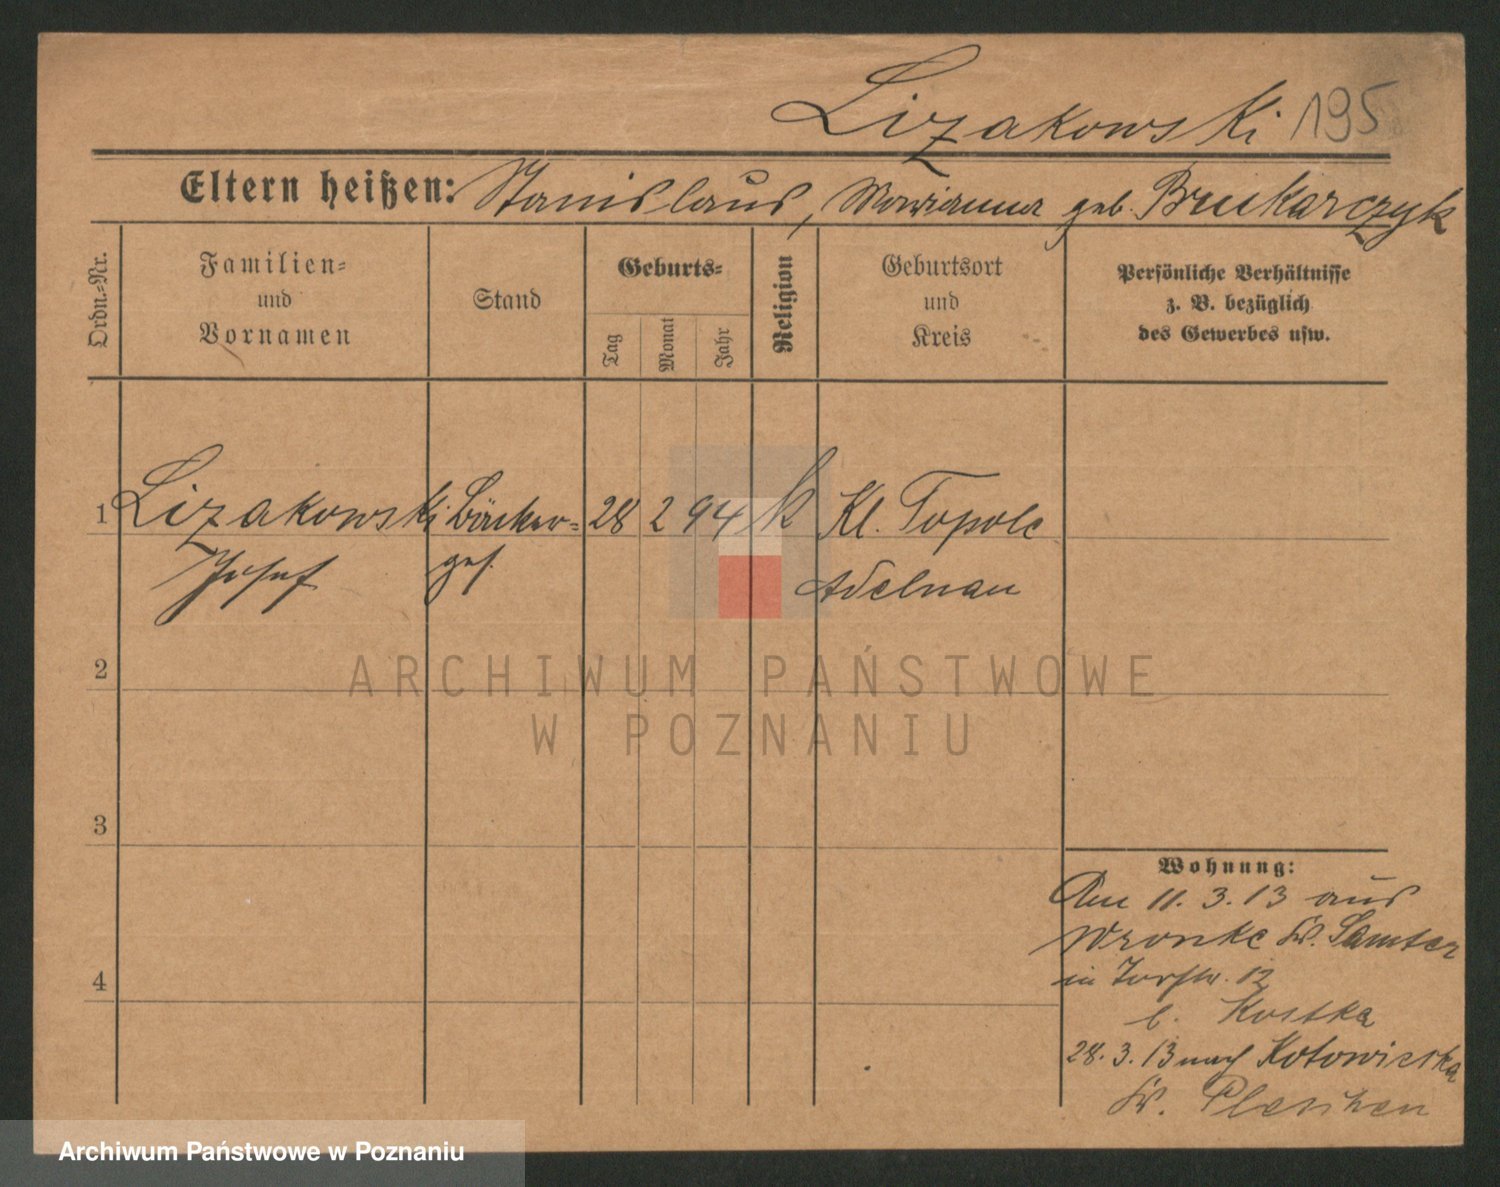 Lizakowski 195
Eltern heißen: Stanislaus, Marianna geb. Bruckarczyk
Ordn.-Nr.
Familien-
und
Vornamen
Stand
Geburts-
Tag
Monat
Jahr
Religion
Geburtsort
und
Kreis
Persönliche Verhältnisse
z. B. bezüglich
des Gewerbes usw.
1 Lizakowski Bäcker- 28 2 94 k Kl. Topole
Josef ges. Adelnau
2
3
4
Wohnung:
Am 11. 3. 13 aus
Wronke Kr. Samter
in Torstr. 12
b. Kostka
28. 3. 13 nach Kotowieska
Kr. Pleschen
ARCHIWUM PAŃSTWOWE
W POZNANIU
Archiwum Państwowe w Poznaniu